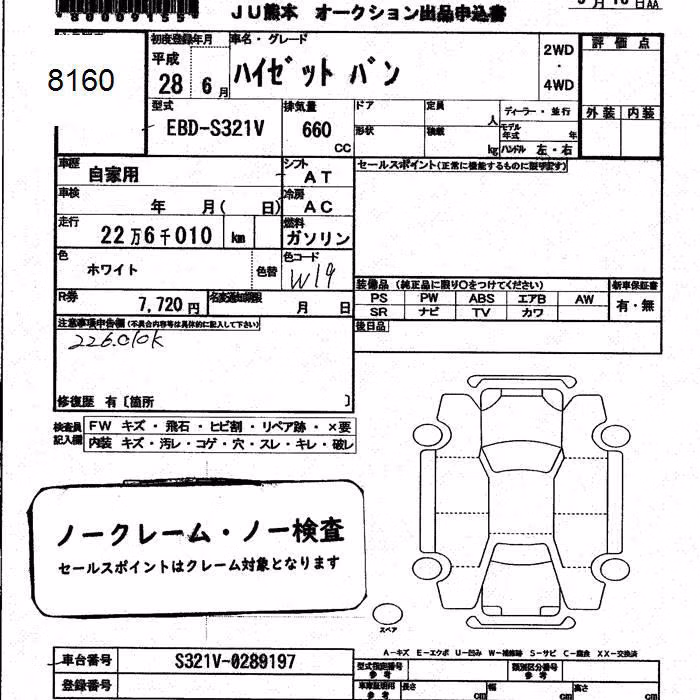 *80009155*
JU熊本 オークション出品申込書
8160
初度登録年月
平成
28 6月
車名・グレード
ハイゼット バン
2WD
・
4WD
評価点
外装 内装
型式
EBD-S321V
排気量
660
CC
ドア
定員
人
ディーラー・並行
形状
積載
kg
モデル年式 年
ハンドル 左・右
車歴
自家用
シフト
AT
セールスポイント(正常に機能するものに限ります)
車検
年 月( 日)
冷房
AC
走行
22万6千010 km
燃料
ガソリン
色
ホワイト
色替
色コード
W19
R券
7,720円
名変通知期限
月 日
装備品 (純正品に限り○をつけてください)
PS PW ABS エアB AW
SR ナビ TV カワ
新車保証書
有・無
後日品
注意事項申告欄(不具合内容等は具体的に記入して下さい)
226.010K
修復歴 有〔箇所 〕
検査員記入欄
FW キズ・飛石・ヒビ割・リペア跡・×要
内装 キズ・汚レ・コゲ・穴・スレ・キレ・破レ
ノークレーム・ノー検査
セールスポイントはクレーム対象となります
スペア
A-キズ E-エクボ U-凹み W-補修跡 S-サビ C-腐食 XX-交換済
車台番号
S321V-0289197
登録番号
型式指定番号
参考
類別区分番号
参考
車庫証明用
参考
長さ cm
幅 cm
高さ cm